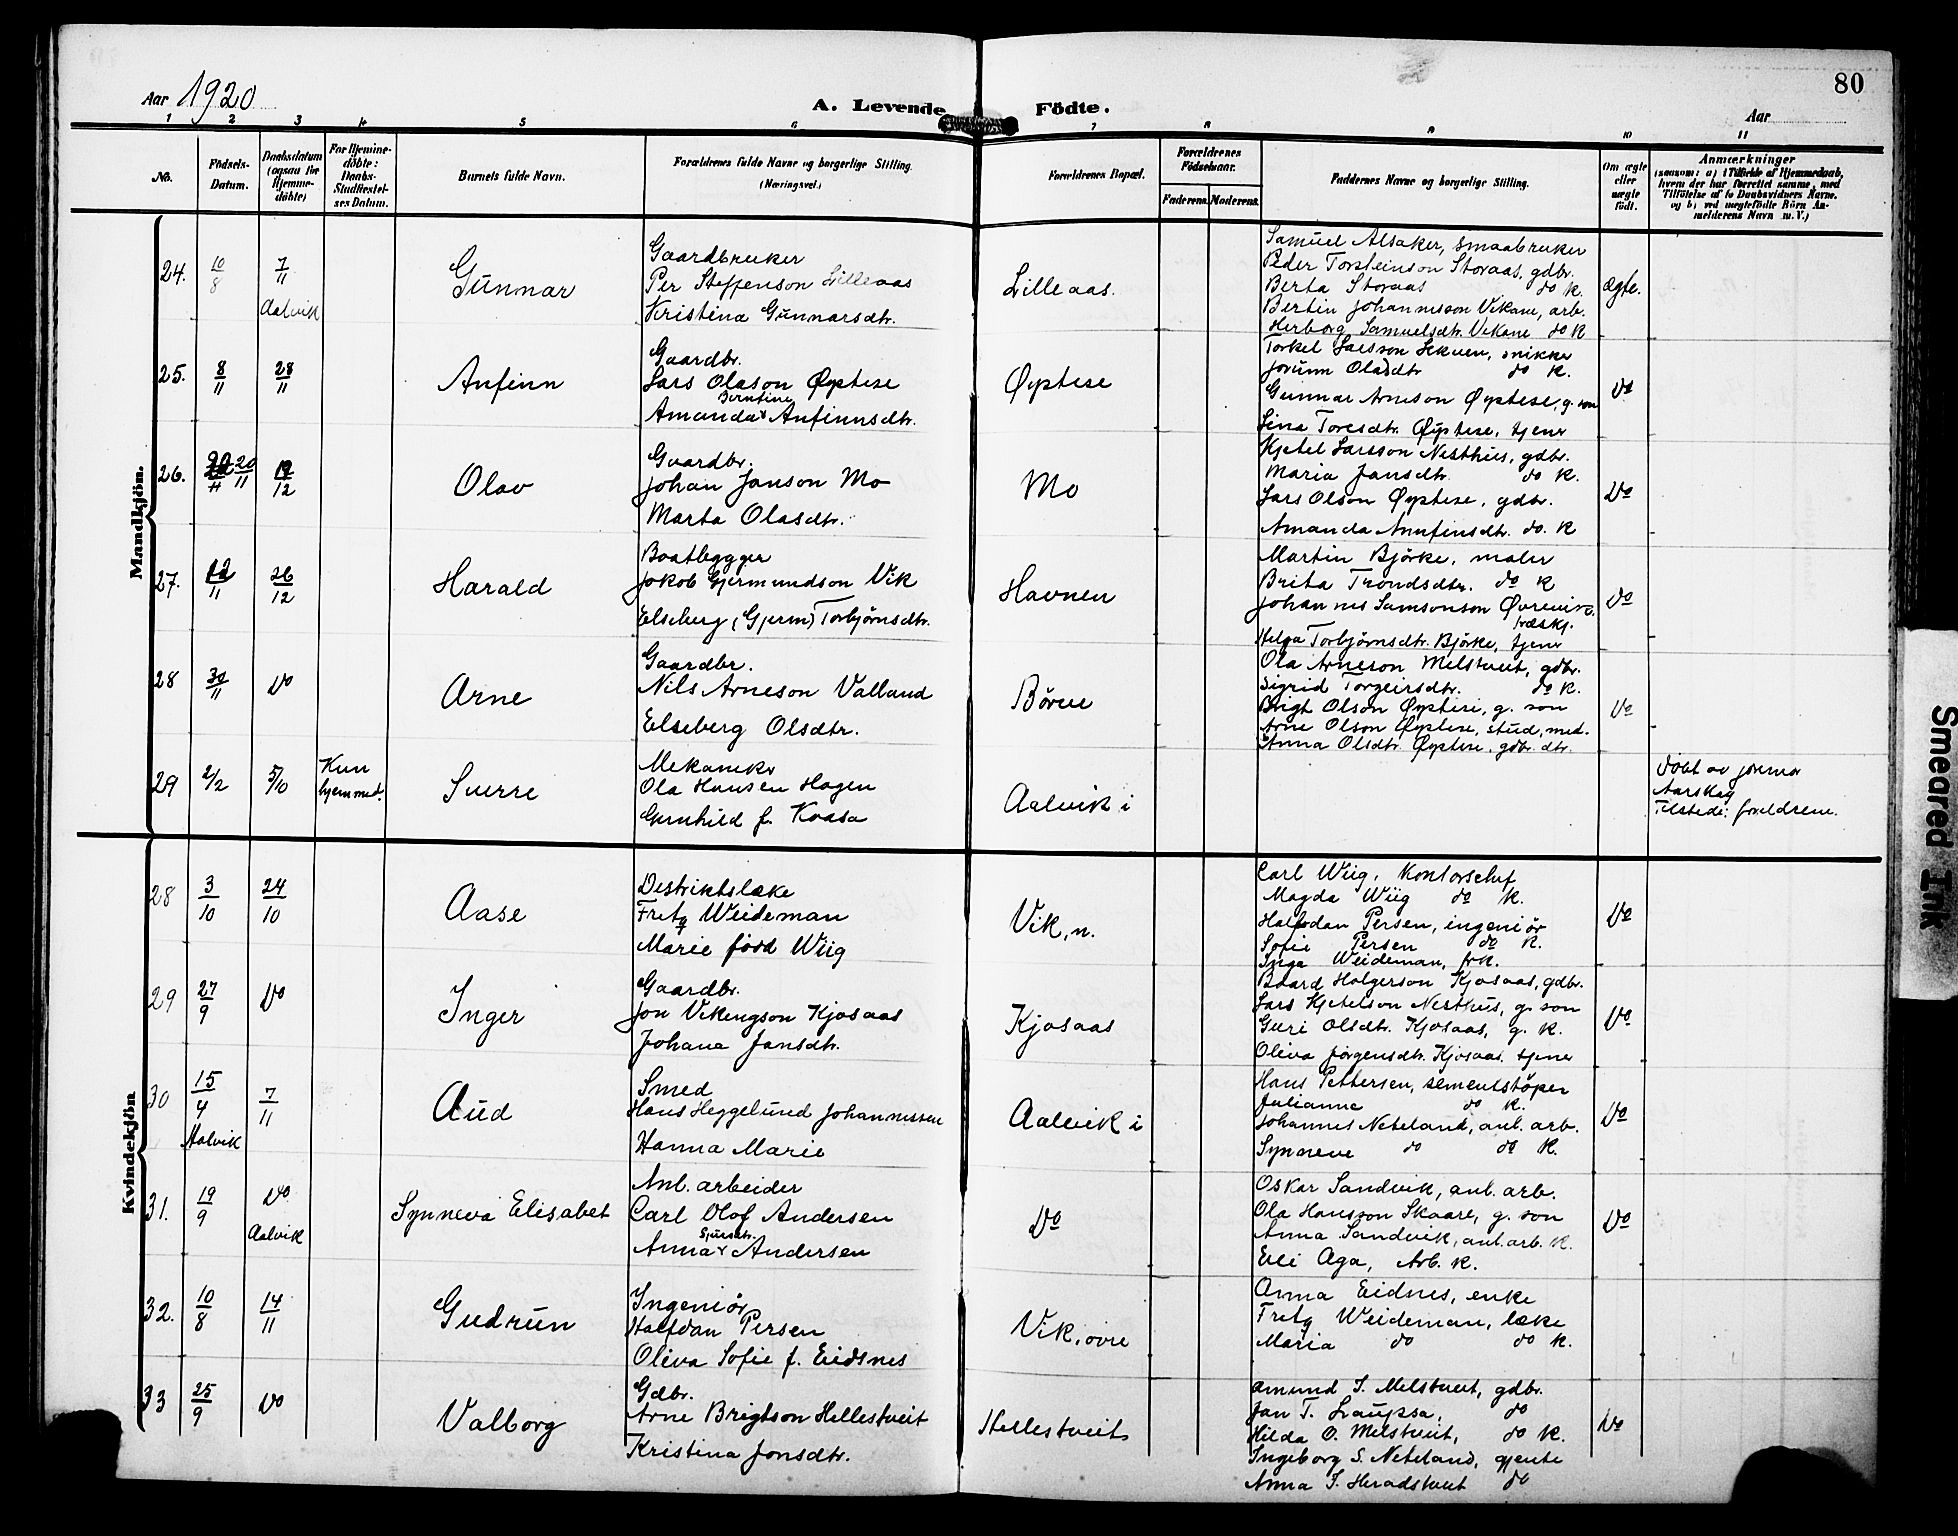 80
Aar 1920
A. Levende Födte.
Aar
1 2 3 4 5 6 7 8 9 10 11
No.
Födsels-Datum.
Daabsdatum (ogsaa for Hjemme-döbte)
For Hjemme-döbte: Daabs-Stadfestel-ses Datum.
Barnets fulde Navn.
Forældrenes fulde Navne og borgerlige Stilling. (Næringsvei.)
Forældrenes Bopæl.
Forældrenes Födselsaar.
Faderens. Moderens.
Faddernes Navne og borgerlige Stilling.
Om ægte eller uægte födt.
Anmærkninger
(saasom: a) i Tilfælde af Hjemmedaab,
hvem der har forrettet samme, med
Tilföielse af to Daabsvidners Navne,
og b) ved uægtefödte Börn An-
melderens Navn m.V.)
Mandkjön.
24. 10/8 7/11 Aalvik
Gunnar
Gaardbruker
Per Steffenson Lilleaas
Kristina Gunnarsdtr.
Lilleaas.
Samuel Alsaker, smaabruker
Peder Torsteinson Storaas, gdbr.
Berta Storaas do k.
Bertin Johannesson Vikane, arb.
Herborg Samuelsdtr. Vikane do k
ægte.
25. 8/11 28/11
Anfinn
Gaardbr.
Lars Olason Øystese
Berntine
Amanda Anfinnsdtr.
Øystese
Torkel Larsson Skuen, snikker
Jorunn Olasdtr do k.
Gunnar Arneson Øystese, g. son
Lina Toresdtr. Øystese, tjener
do
26. 20/11 12/12
Olav
Gaardbr.
Johan Janson Mo
Marta Olasdtr.
Mo
Kjetel Larsson Nesthus, gdbr.
Maria Jansdtr. do k.
Lars Olson Øystese, gdbr.
Amanda Annfinsdtr. do. k
Do
27. 12/11 26/12
Harald
Baatbygger
Jokob Gjermundson Vik
Elseberg (Gjerm) Torbjørnsdtr.
Havnen
Martin Bjørke, maler
Brita Trondsdtr. do k
Johannes Samsonson Øvrevik
træskj.
Helga Torbjørnsdtr. Bjørke, tjener
Do
28 30/11 Do
Arne
Gaardbr.
Nils Arneson Valland
Elseberg Olsdtr.
Børve
Ola Arneson Melstveit, gdbr.
Sigrid Torgeirsdtr. do k.
Brigt Olson Øystese, g. son
Arne Olson Øystese, stud, med.
Anna Olsdtr. Øystese, gdbr. dtr.
Do
29 2/2 5/10 Kun hjemmed.
Sverre
Mekaniker
Ola Hansen Hagen
Gunhild f. Kvasa
Aalvik i
Døbt av jormor
Aarskog
Tilstede: foreldrene.
Kvindekjön
28 3/10 24/10
Aase
Distriktslæke
Fritz Weideman
Marie född Wiig
Vik, n.
Carl Wiig, Kontorschef
Magda Wiig do k.
Halfdan Persen, ingeniør
Sofie Persen do k.
Inga Weideman, frk.
Do
29 27/9 Do
Inger
Gaardbr.
Jon Vikengson Kjosaas
Johana Jansdtr.
Kjosaas
Baard Holgerson Kjosaas, gdbr.
Lars Kjetelson Nesthus, g. son
Guri Olsdtr. Kjosaas, g. k.
Oliva Jørgensdtr. Kjosaas, tjener
Do
30 15/4 Aalvik 7/11
Aud
Smed
Hans Heggelund Johannessen
Hanna Marie
Aalvik i
Hans Pettersen, sementstøper
Julianne do k.
Johannes Neteland, anl. arb.
Synneve do do k.
Do
31. 19/9 Do Aalvik
Synneva Elisabet
Anl. arbeider
Carl Olof Andersen
Sjursdtr.
Anna Andersen
Do
Oskar Sandvik, anl. arb.
Ola Hansson Skaare, g. son
Anna Sandvik, anl. arb. k.
Eli Aga, Arb. k.
Do
32. 10/8 14/11
Gudrun
Ingeniør
Halfdan Persen
Oliva Sofie f. Eidsnes
Vik, øvre
Anna Eidnes, enke
Fritz Weideman, læke
Maria do do k.
33 25/9 Do
Valborg
Gdbr.
Arne Brigtson Hellestveit
Kristina Jonsdtr.
Hellestveit
Amund I. Melstveit, gdbr.
Jan T. Laupsa, do
Hilda O. Melstveit, do k.
Ingeborg S. Neteland, gjente
Anna I. Heradstveit do
Do
Smeared Ink